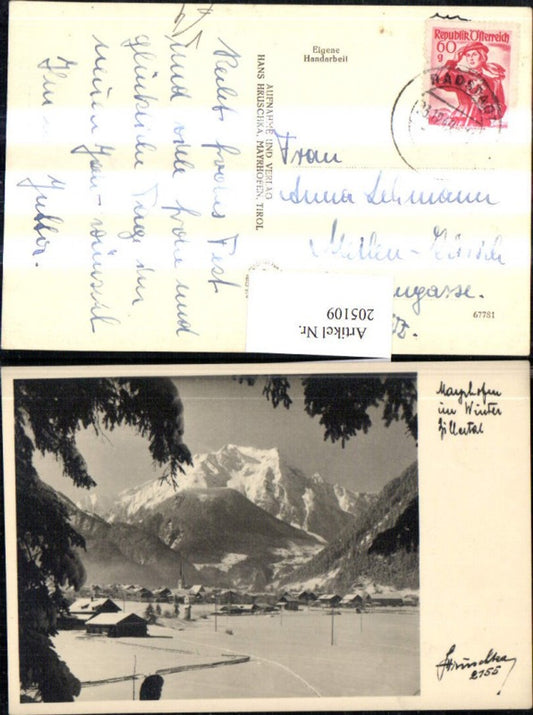 Recht frohes Fest
und viele frohe und
glückliche Tage im
neuen Jahr wünscht
Eigene
Handarbeit
AUFNAHME UND VERLAG
HANS HRUSCHKA, MAYRHOFEN, TIROL
Republik Österreich
60
g
RADSTADT
Frau
Anna Lehmann
gasse.
67781
Artikel Nr.
205109
Mayrhofen
im Winter
Zillertal
Hruschka
2155